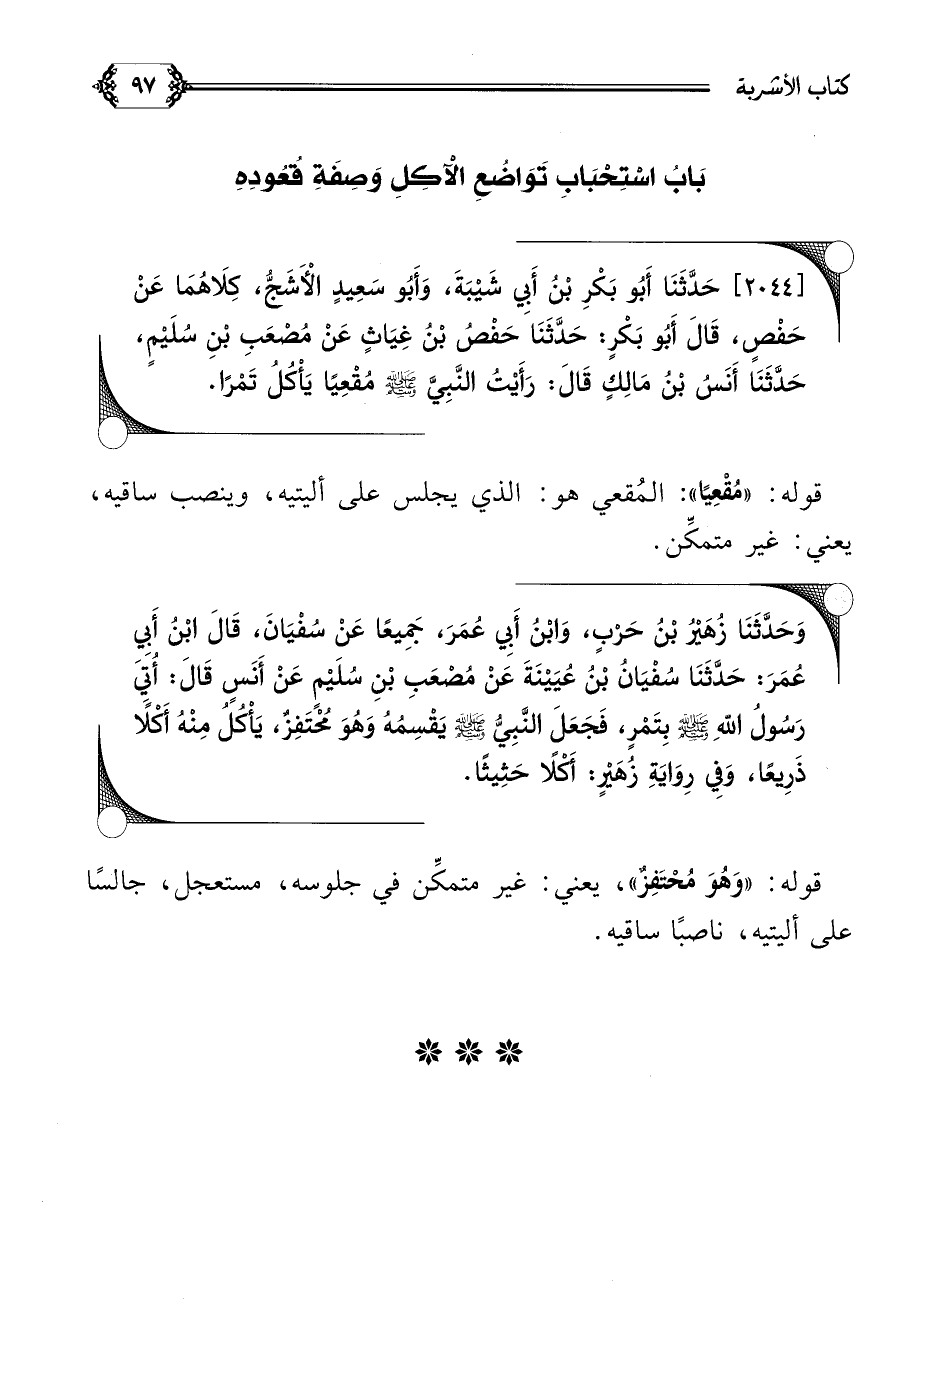 كتاب الأشربة ٩٧
بَابُ اسْتِحْبَابِ تَوَاضُعِ الْآكِلِ وَصِفَةِ قُعُودِهِ
[٢٠٤٤] حَدَّثَنَا أَبُو بَكْرِ بْنُ أَبِي شَيْبَةَ، وَأَبُو سَعِيدٍ الْأَشَجُّ، كِلَاهُمَا عَنْ
حَفْصٍ، قَالَ أَبُو بَكْرٍ: حَدَّثَنَا حَفْصُ بْنُ غِيَاثٍ عَنْ مُصْعَبِ بْنِ سُلَيْمٍ،
حَدَّثَنَا أَنَسُ بْنُ مَالِكٍ قَالَ: رَأَيْتُ النَّبِيَّ ﷺ مُقْعِيًا يَأْكُلُ تَمْرًا.
قوله: «مُقْعِيًا»: المُقعي هو: الذي يجلس على أليتيه، وينصب ساقيه،
يعني: غير متمكِّن.
وَحَدَّثَنَا زُهَيْرُ بْنُ حَرْبٍ، وَابْنُ أَبِي عُمَرَ، جَمِيعًا عَنْ سُفْيَانَ، قَالَ ابْنُ أَبِي
عُمَرَ: حَدَّثَنَا سُفْيَانُ بْنُ عُيَيْنَةَ عَنْ مُصْعَبِ بْنِ سُلَيْمٍ عَنْ أَنَسٍ قَالَ: أُتِيَ
رَسُولُ اللهِ ﷺ بِتَمْرٍ، فَجَعَلَ النَّبِيُّ ﷺ يَقْسِمُهُ وَهُوَ مُحْتَفِزٌ، يَأْكُلُ مِنْهُ أَكْلًا
ذَرِيعًا، وَفِي رِوَايَةِ زُهَيْرٍ: أَكْلًا حَثِيثًا.
قوله: «وَهُوَ مُحْتَفِزٌ»، يعني: غير متمكِّن في جلوسه، مستعجل، جالسًا
على أليتيه، ناصبًا ساقيه.